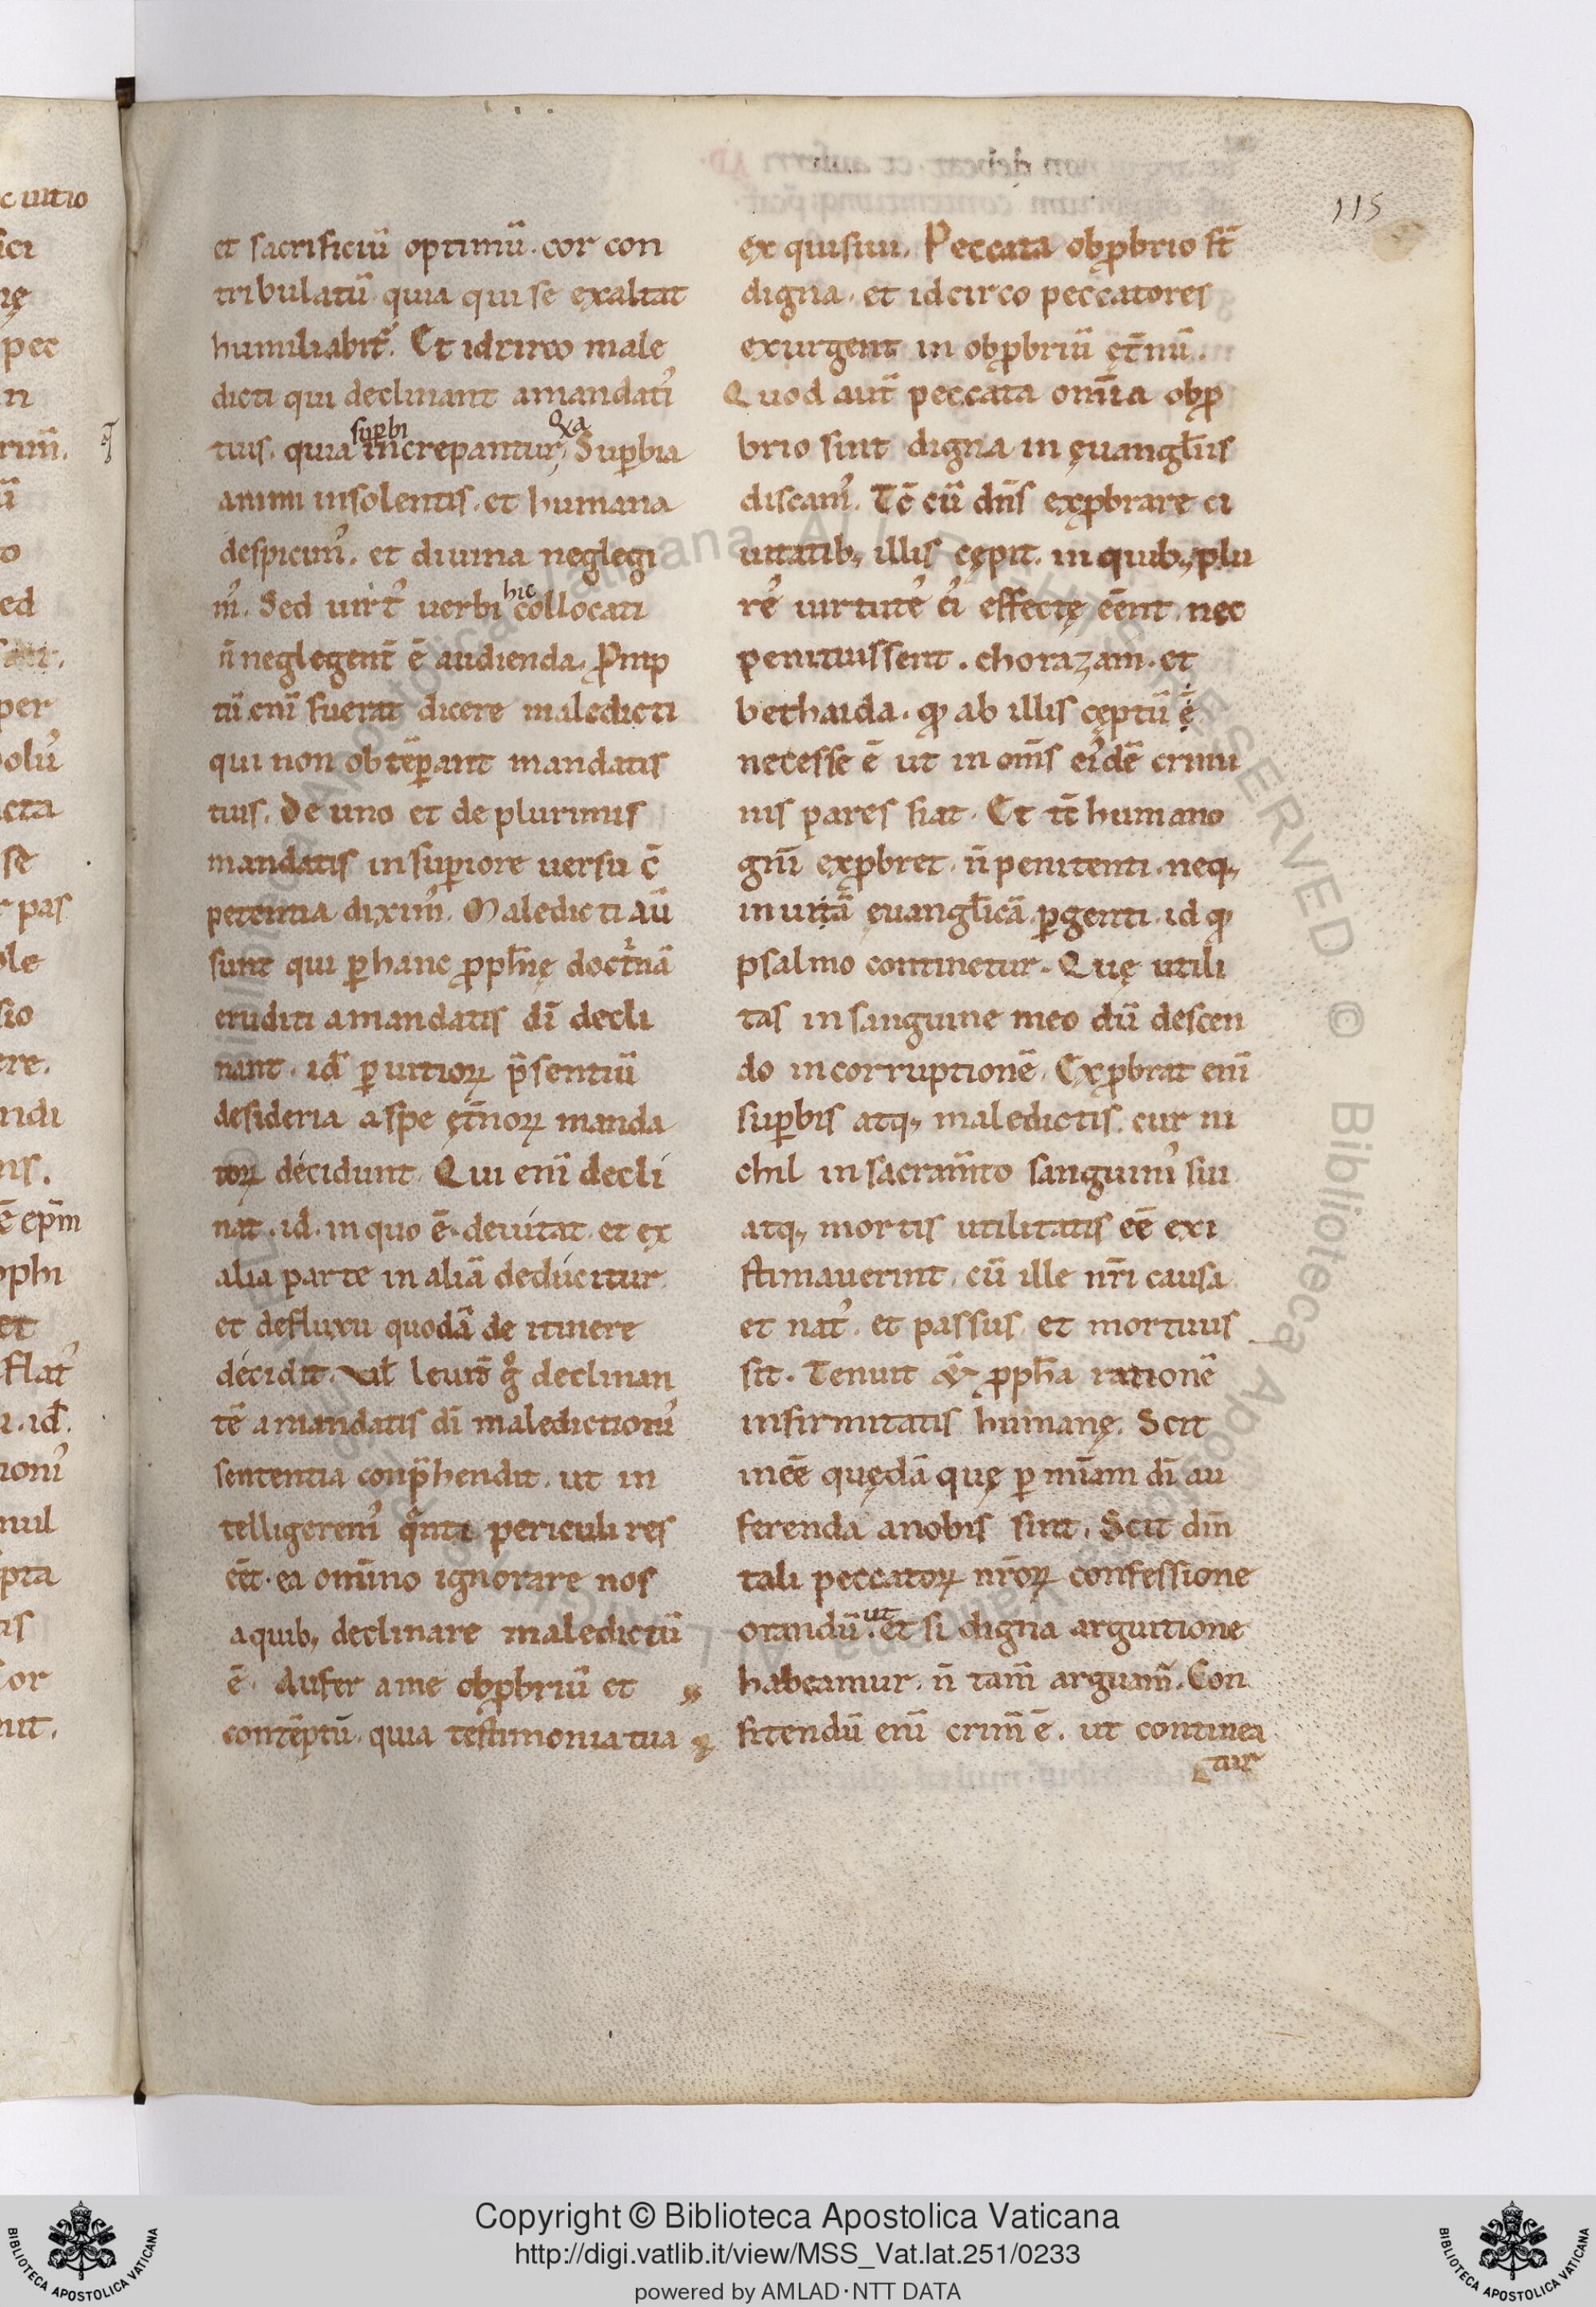 115
et sacrificiū optimū. cor con
tribulatū quia qui se exaltat
humiliabit᷑. Et idcirco male
dicti qui declinant amandatꝰ
tuis. quia suꝑbi increpantur; Suꝑbia
animi insolentis. et humana
despicimꝰ. et diuina neglegi
mꝰ. Sed uirtꝰ uerbi hic collocati
n̄ neglegent᷑ ē audienda. Pmp
tū enī fuerat dicere maledicti
qui non obtēꝑant mandatis
tuis. De uno et de plurimis
mandatis in suꝑiore uersu cō
petentia diximꝰ. Maledicti aū
sunt qui ꝑ hanc ꝓph̄ę doctͥnā
eruditi amandatis dī decli
nant. id ꝑ uitioꝝ p̄sentiū
desideria aspe ęt̄noꝝ manda
toꝝ decidunt. Qui enī decli
nat. id. in quo ē. deuitat. et ex
alia parte in aliā deducitur
et defluxu quodā de itinere
decidit. Vł leuit᷑ gͦ declinan
tē amandatis dī maledictionꝰ
sententia conp̄hendit. ut in
telligeremꝰ qͣnti periculi res
eēt. ea omīno ignorare nos
aquibꝫ declinare maledictū
ē. Aufer ame obꝓbriū et
contēptū. quia testimonia tua
exquisiui. Peccata obꝓbrio st̄
digna. et idcirco peccatores
exurgent in obꝓbriū ęt̄nū.
Quod aut̄ peccata om̄ia obꝓ
brio sint digna in ęuangl̄iis
discamꝰ. Tc̄ cū dn̄s exꝓbrare ci
uitatibꝫ illis cępit. in quibꝫ plu
rē uirtutē eiꝰ effectę eēnt. nec
penituissent. chorazam. et
bethaida. qꝫ ab illis cęptū ē
necesse ē ut in om̄s eiꝰdē crimi
nis pares fiat. Et tc̄ humano
gn̄i exꝓbret. n̄ penitenti. neqꝫ
inuitā ęuangl̄icā ꝑgenti. id qꝫ
psalmo continetur. Quę utili
tas in sanguine meo dū descen
do in corruptionē. Exꝓbrat enī
suꝑbis atqꝫ maledictis. cur ni
chil in sacram̄to sanguinꝰ sui
atqꝫ mortis utilitatis eē exi
stimauerint. cū ille nr̄i causa
et natꝰ. et passus. et mortuus
sit. Tenuit ꝓph̄a rationē
infirmitatis humanę. Scit
ineē quędā quę ꝑ mīam dī au
ferenda anobis sint. Scit dm̄
tali peccatoꝝ nr̄oꝝ confessione
orandū. ut et si digna arguitione
habeamur. n̄ tam̄ arguam᷑. Con
fitendū enī crim̄ ē. ut continea
tur
Copyright © Biblioteca Apostolica Vaticana
http://digi.vatlib.it/view/MSS_Vat.lat.251/0233
powered by AMLAD·NTT DATA
BIBLIOTECA APOSTOLICA VATICANA
BIBLIOTECA APOSTOLICA VATICANA